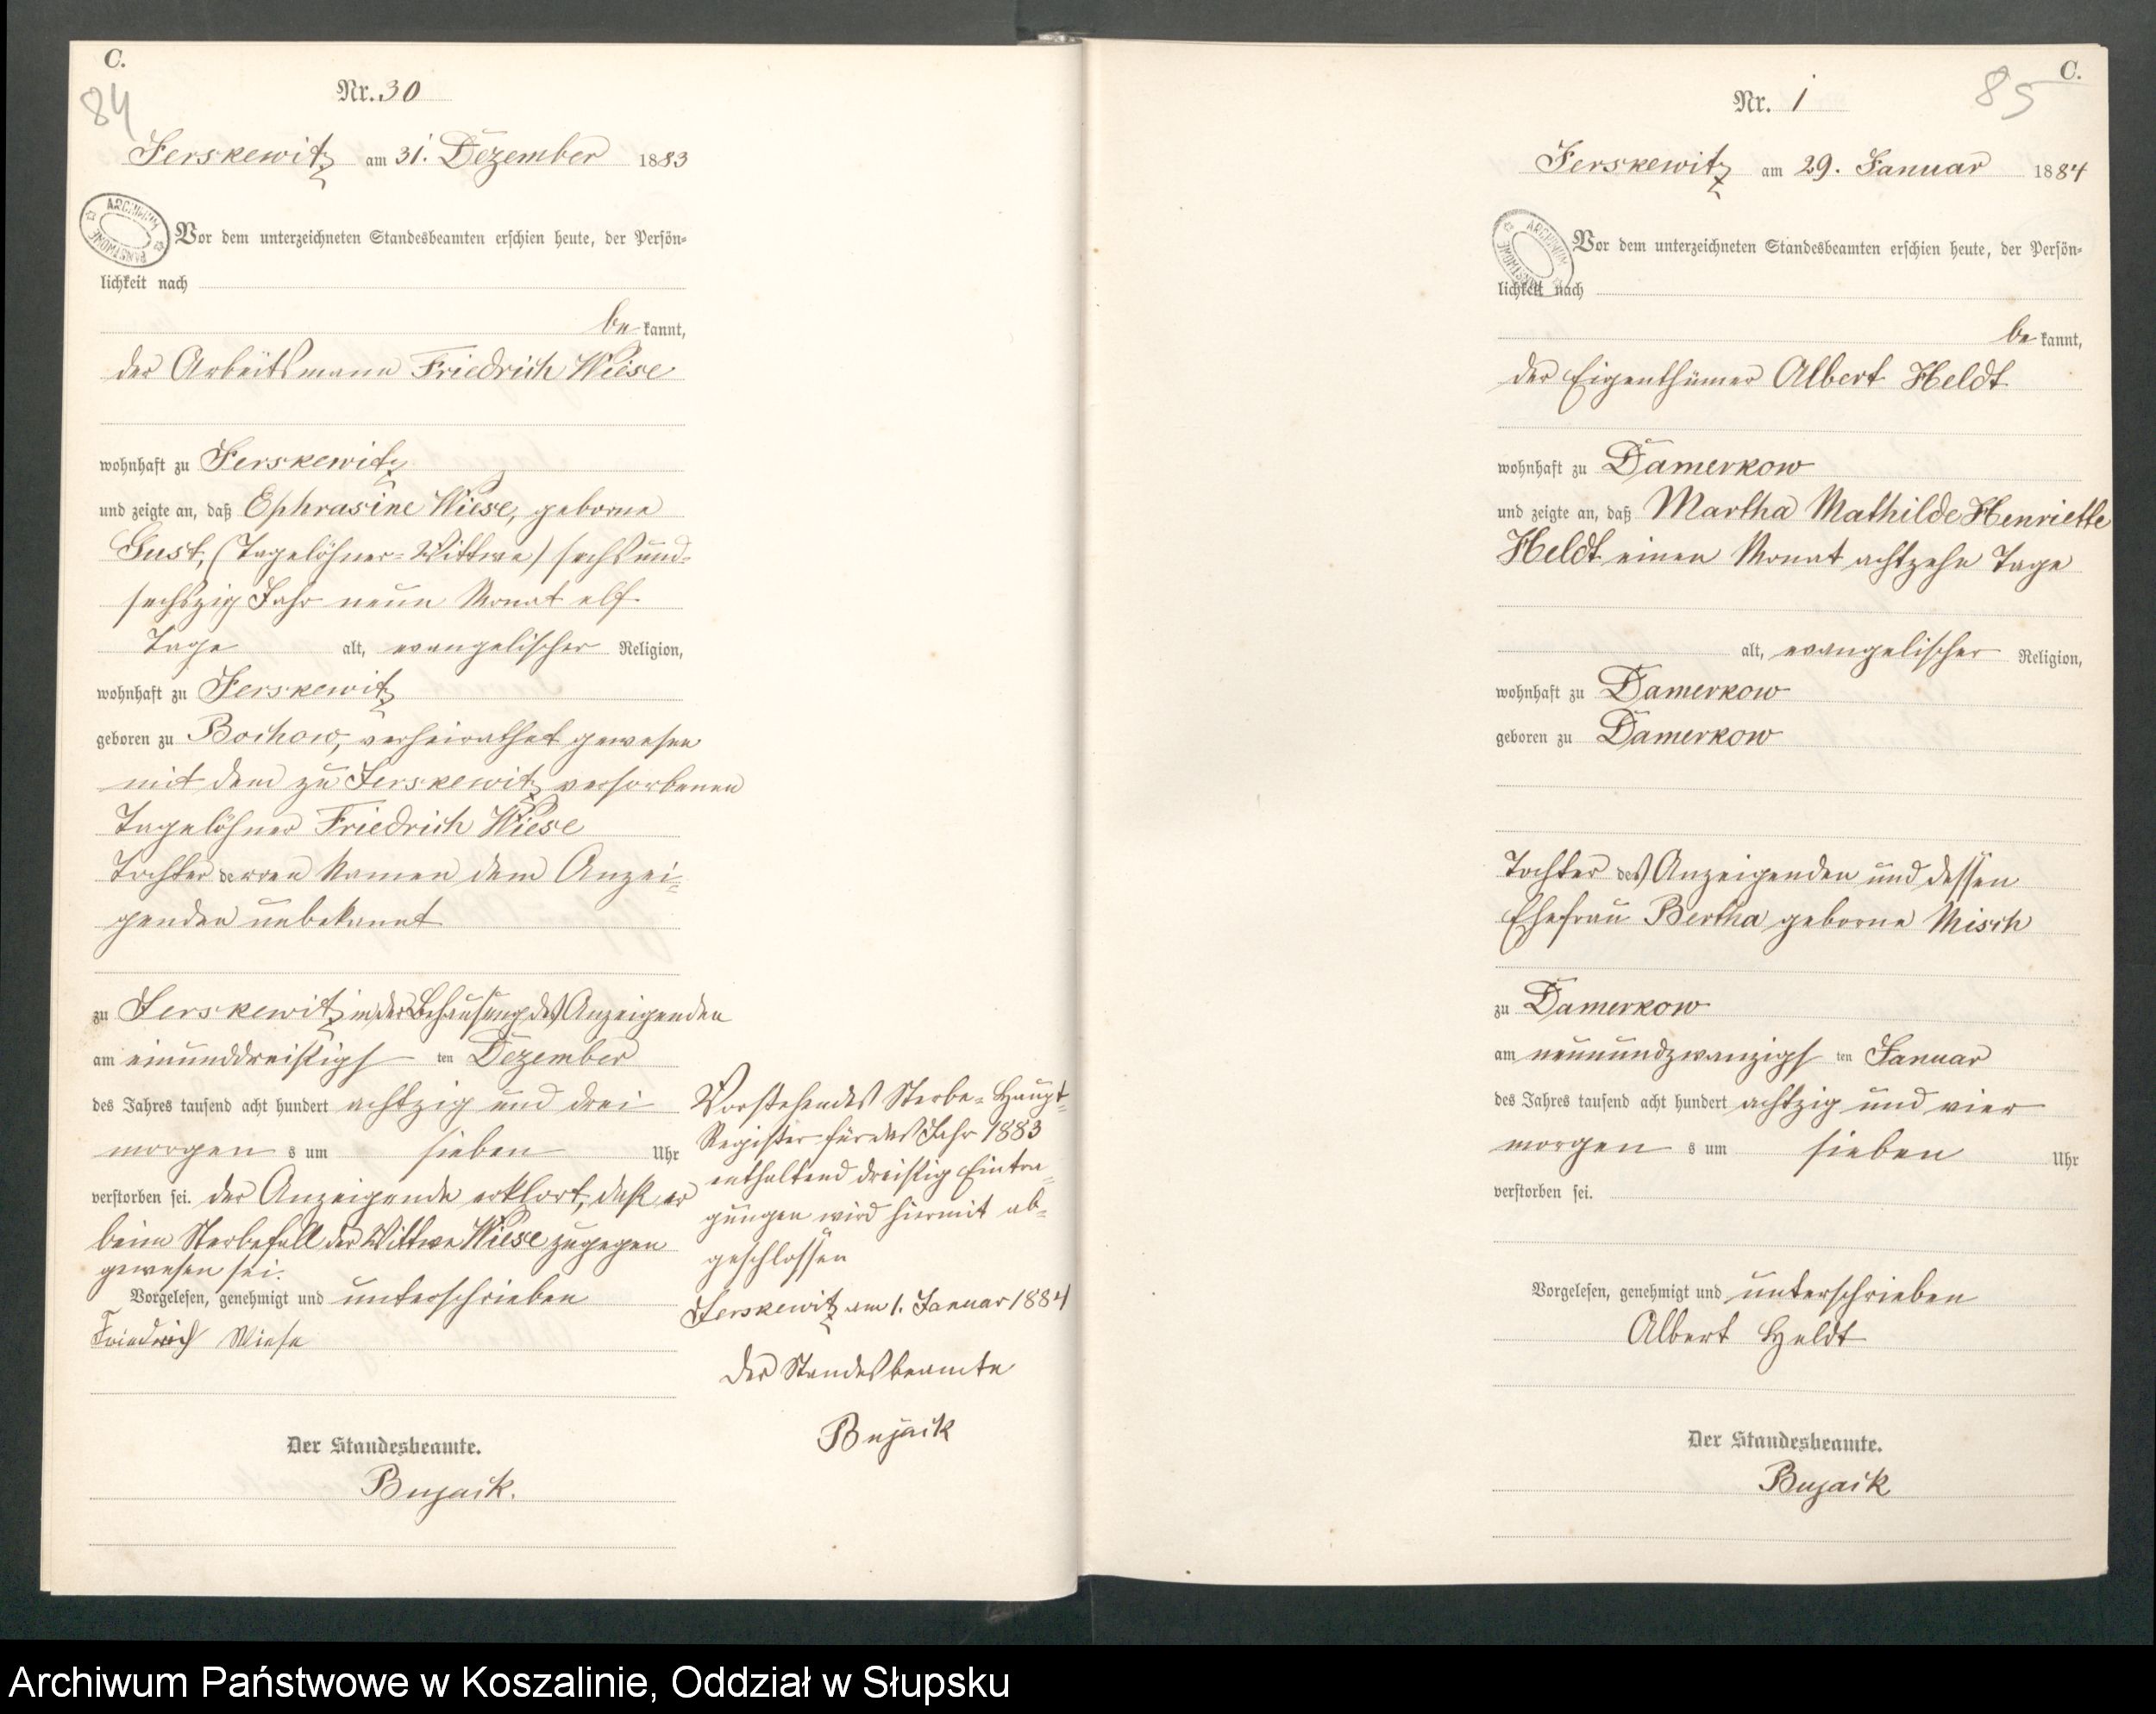 C.
84
Nr. 30
Jerskewitz am 31. Dezember 1883
ARCHIWUM PAŃSTWOWE
Vor dem unterzeichneten Standesbeamten erschien heute, der Persön-
lichkeit nach
be kannt,
der Arbeitsmann Friedrich Wiese
wohnhaft zu Jerskewitz
und zeigte an, daß Ephrasine Wiese, geborne
Gust, (Tagelöhner-Wittwe) sechsund-
sechszig Jahr neun Monat elf
Tage alt, evangelischer Religion,
wohnhaft zu Jerskewitz
geboren zu Bochow, verheirathet gewesen
mit dem zu Jerskewitz verstorbenen
Tagelöhner Friedrich Wiese
Tochter deren Namen dem Anzei-
genden unbekannt
zu Jerskewitz in der Behausung des Anzeigenden
am einunddreißigsten Dezember
des Jahres tausend acht hundert achtzig und drei
morgen s um sieben Uhr
verstorben sei. Der Anzeigende erklärt, daß er
beim Sterbefall der Wittwe Wiese zugegen
gewesen sei.
Vorgelesen, genehmigt und unterschrieben
Friedrich Wiese
Der Standesbeamte.
Bujack.
Vorstehendes Sterbe-Haupt-
Register für das Jahr 1883
enthaltend dreißig Eintra-
gungen wird hiermit ab-
geschlossen
Jerskewitz am 1. Januar 1884
Der Standesbeamte
Bujack
C.
85
Nr. 1
Jerskewitz am 29. Januar 1884
ARCHIWUM PAŃSTWOWE
Vor dem unterzeichneten Standesbeamten erschien heute, der Persön-
lichkeit nach
be kannt,
der Eigenthümer Albert Heldt
wohnhaft zu Damerkow
und zeigte an, daß Martha Mathilde Henriette
Heldt einen Monat achtzehn Tage
alt, evangelischer Religion,
wohnhaft zu Damerkow
geboren zu Damerkow
Tochter des Anzeigenden und dessen
Ehefrau Bertha geborne Misch
zu Damerkow
am neunundzwanzigsten Januar
des Jahres tausend acht hundert achtzig und vier
morgen s um sieben Uhr
verstorben sei.
Vorgelesen, genehmigt und unterschrieben
Albert Heldt
Der Standesbeamte.
Bujack
Archiwum Państwowe w Koszalinie, Oddział w Słupsku